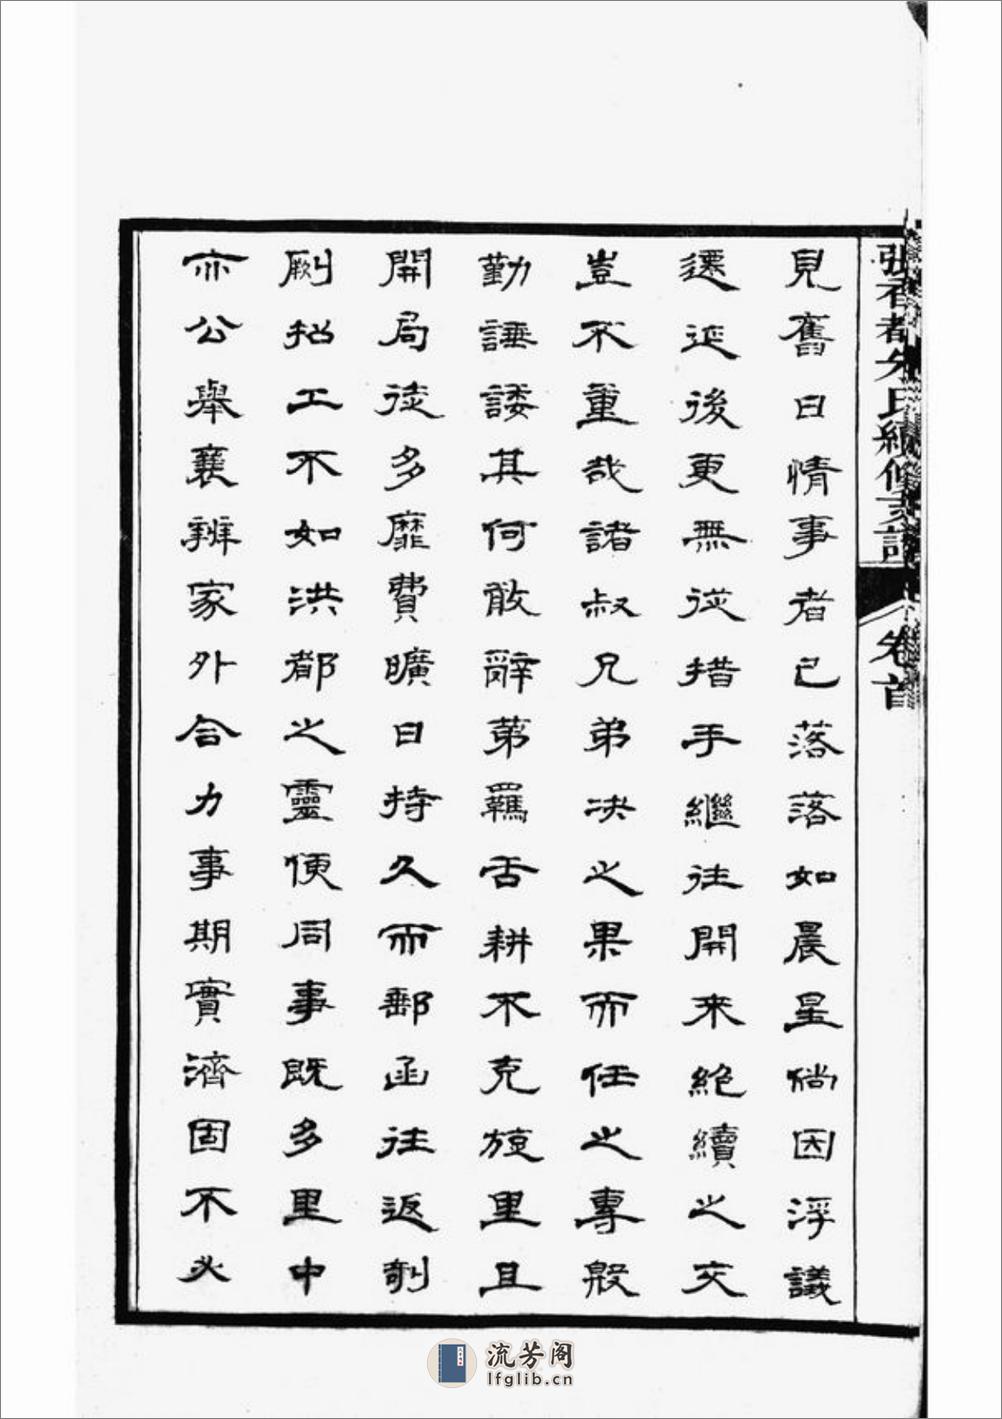 張香都朱氏續修支譜 卷首
見舊日情事者已落落如晨星尙因浮議
遷延後更無從措手繼往開来絶續之交
豈不重哉諸叔兄弟决之果而任之專殷
勤諈諉其何敢辭第羈舌耕不克旋里且
開局徒多靡費曠日持久而郵函往返剞
劂招工不如洪都之靈便同事既多里中
亦公舉襄辦家外合力事期實濟固不必
流芳阁
lfglib.cn